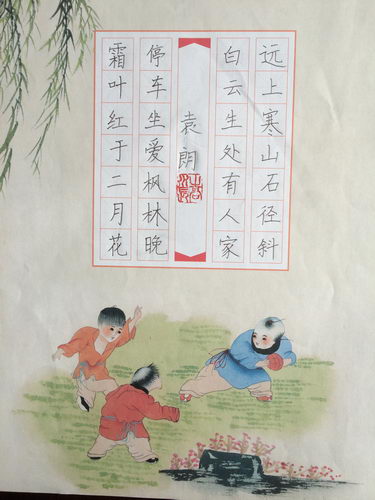 远上寒山石径斜
白云生处有人家
袁朗
停车坐爱枫林晚
霜叶红于二月花